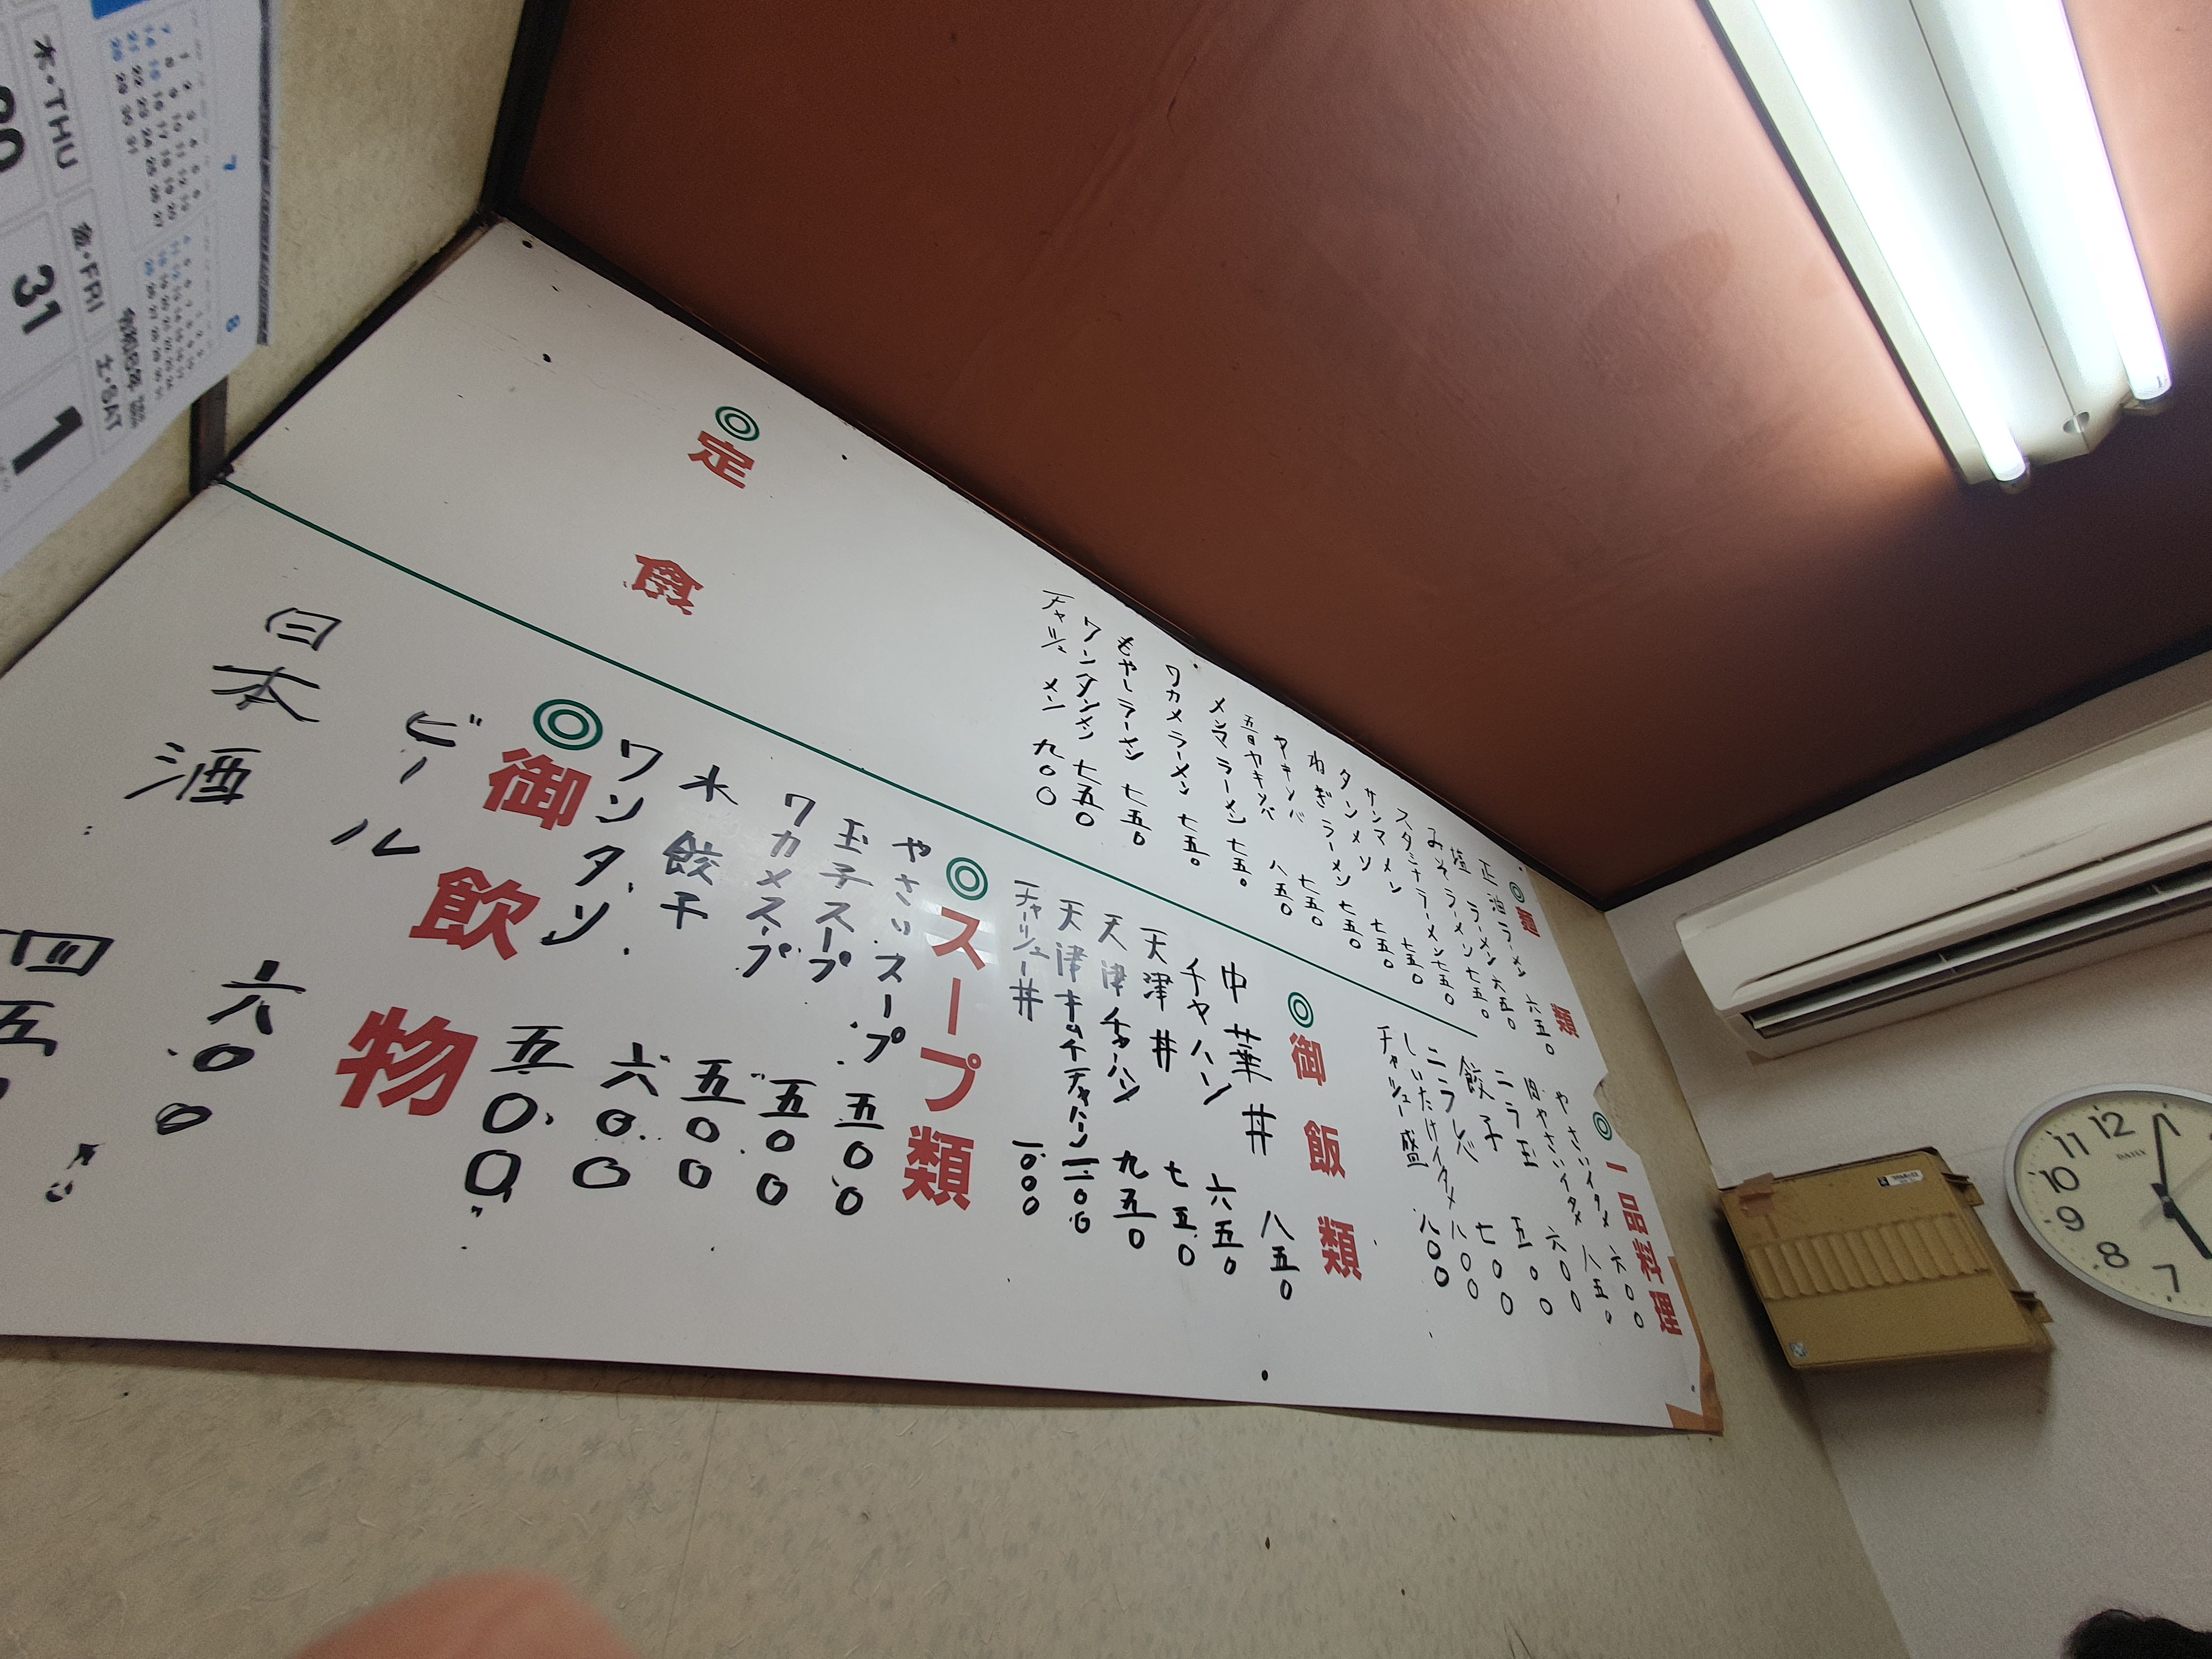 ◎麺類
正油ラーメン 六五〇
塩ラーメン 六五〇
みそラーメン 七五〇
スタミナラーメン 七五〇
サンマメン 七五〇
タンメン 七五〇
ねぎラーメン 七五〇
ヤキソバ 七五〇
五目ヤキソバ 八五〇
メンマラーメン 七五〇
ワカメラーメン 七五〇
もやしラーメン 七五〇
ワンタンメン 七五〇
チャーシューメン 九〇〇
◎定食
◎一品料理
やさいイタメ 六〇〇
肉やさいイタメ 八五〇
ニラ玉 六〇〇
餃子 五〇〇
ニラレバ 七〇〇
しいたけイタメ 八〇〇
チャーシュー盛 八〇〇
◎御飯類
中華丼 八五〇
チャーハン 六五〇
天津丼 七五〇
天津チャーハン 九五〇
天津キムチチャーハン
チャーシュー丼 一〇〇〇
◎スープ類
やさいスープ 五〇〇
玉子スープ 五〇〇
ワカメスープ 五〇〇
水餃子 六〇〇
ワンタン 五〇〇
◎御飲物
ビール 六〇〇
日本酒 四五
木・THU
金・FRI
土・SAT
31
1
7
8
DAILY
12
11
10
9
8
7